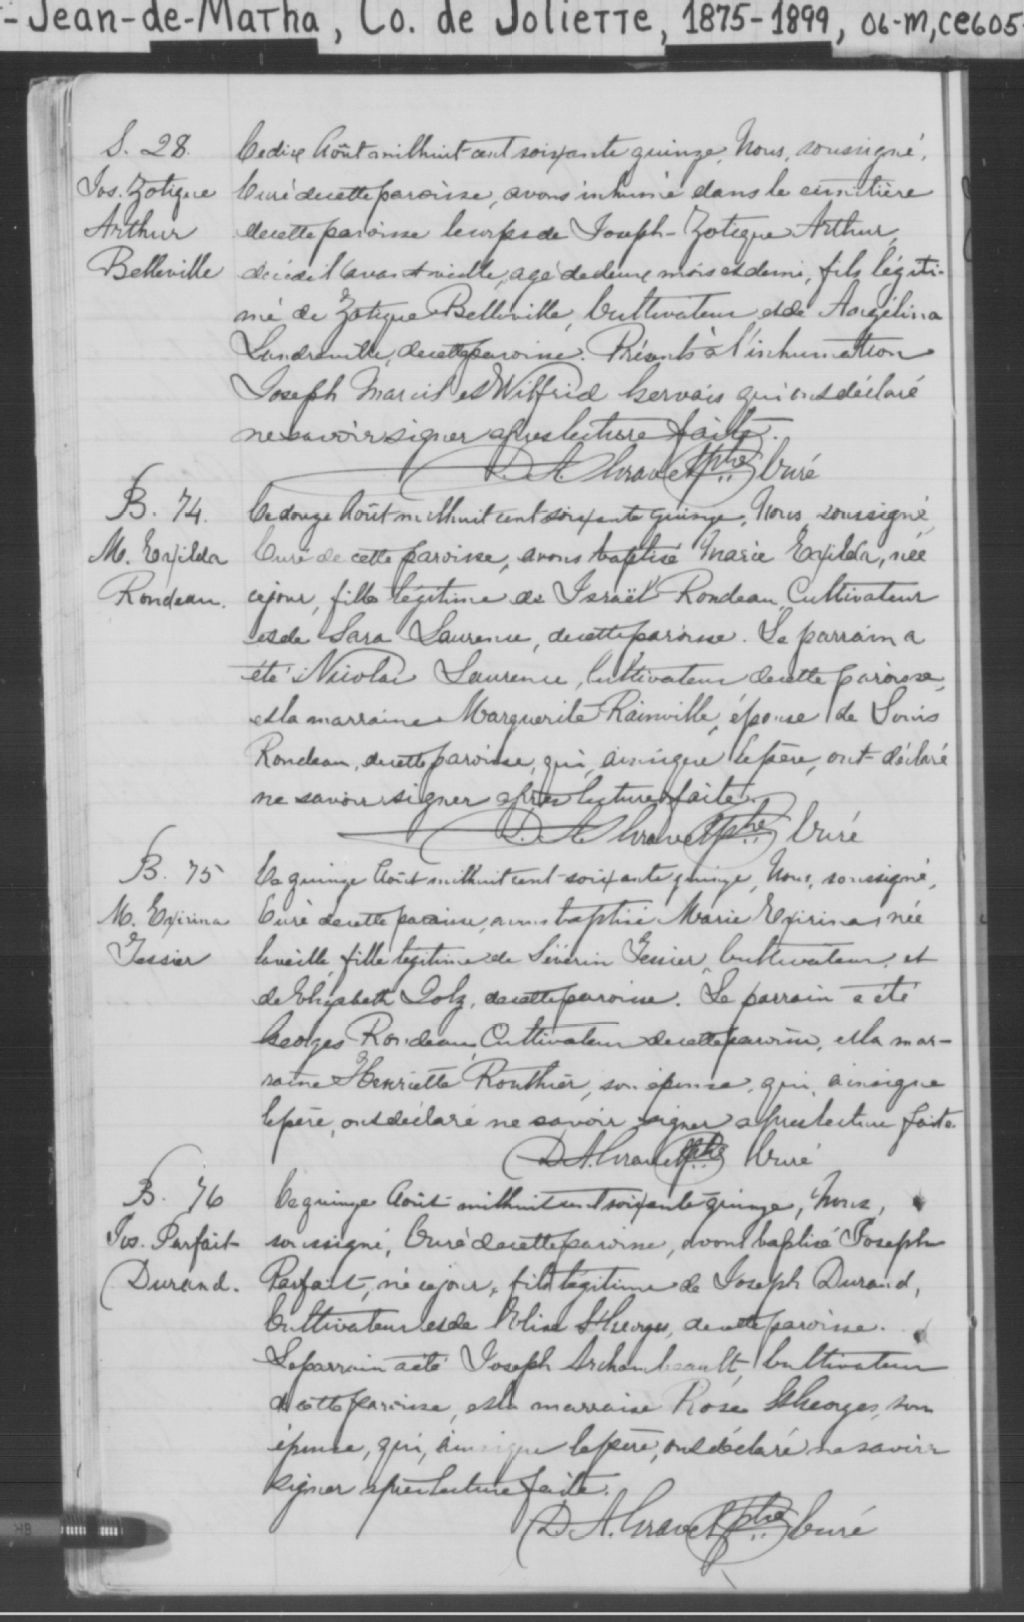 -Jean-de-Matha, Co. de Joliette, 1875-1899, 06-M, CE605-
S. 28.
Jos. Zotique
Arthur
Belleville
Ce dix Août mil huit-cent soixante quinze, Nous, soussigné,
Curé de cette paroisse, avons inhumé dans le cimetière
de cette paroisse le corps de Joseph-Zotique Arthur,
décédé l'avant veille, agé de deux mois et demi, fils légiti-
mé de Zotique Belleville, Cultivateur et de Angélina
Landreville, de cette paroisse. Présents à l'inhumation
Joseph Marcil et Wilfrid Gervais qui ont déclaré
ne savoir signer après lecture faite.
D. A. Gravel Ptre Curé
B. 74.
M. Exilda
Rondeau.
Ce douze Août mil huit cent soixante quinze, Nous, soussigné,
Curé de cette paroisse, avons baptisé Marie Exilda, née
ce jour, fille légitime de Israël Rondeau, Cultivateur
et de Sara Laurence, de cette paroisse. Le parrain a
été Nicolas Laurence, Cultivateur de cette paroisse,
et la marraine Marguerite Rainville, épouse de Louis
Rondeau, de cette paroisse, qui, ainsi que le père, ont déclaré
ne savoir signer après lecture faite.
D. A. Gravel Ptre Curé
B. 75
M. Exirina
Tessier
Ce quinze Août mil huit cent-soixante quinze, Nous, soussigné,
Curé de cette paroisse, avons baptisé Marie Exirina née
la veille, fille légitime de Séverin Tessier, Cultivateur, et
de Elizabeth, de cette paroisse. Le parrain a été
Georges Rondeau, Cultivateur de cette paroisse, et la mar-
raine Henriette Routhier, son épouse, qui, ainsi que
le père, ont déclaré ne savoir signer après lecture faite.
D. A. Gravel Ptre Curé
B. 76
Jos. Parfait
Durand.
Ce quinze Août mil huit cent soixante-quinze, Nous,
soussigné, Curé de cette paroisse, avons baptisé Joseph
Parfait, né ce jour, fils légitime de Joseph Durand,
Cultivateur et de St Georges, de cette paroisse.
Le parrain a été Joseph Archambeault, Cultivateur
de cette paroisse, et la marraine Rose St Georges, son
épouse, qui, ainsi que le père, ont déclaré ne savoir
signer après lecture faite.
D. A. Gravel Ptre Curé